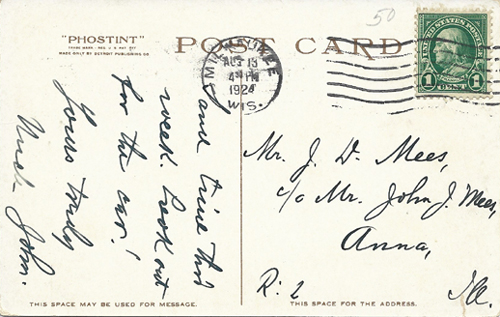 "PHOSTINT"
MADE ONLY BY DETROIT PUBLISHING CO.
POST CARD
50
MILWAUKEE
AUG 13
4 PM
1924
WIS.
UNITED STATES POSTAGE
1 1
and time this
week. Look out
for the car!
Yours truly
Uncle John.
Mr. J. D. Mees,
c/o Mr. John J. Mees,
Anna,
R. 2 Ill.
THIS SPACE MAY BE USED FOR MESSAGE.
THIS SPACE FOR THE ADDRESS.